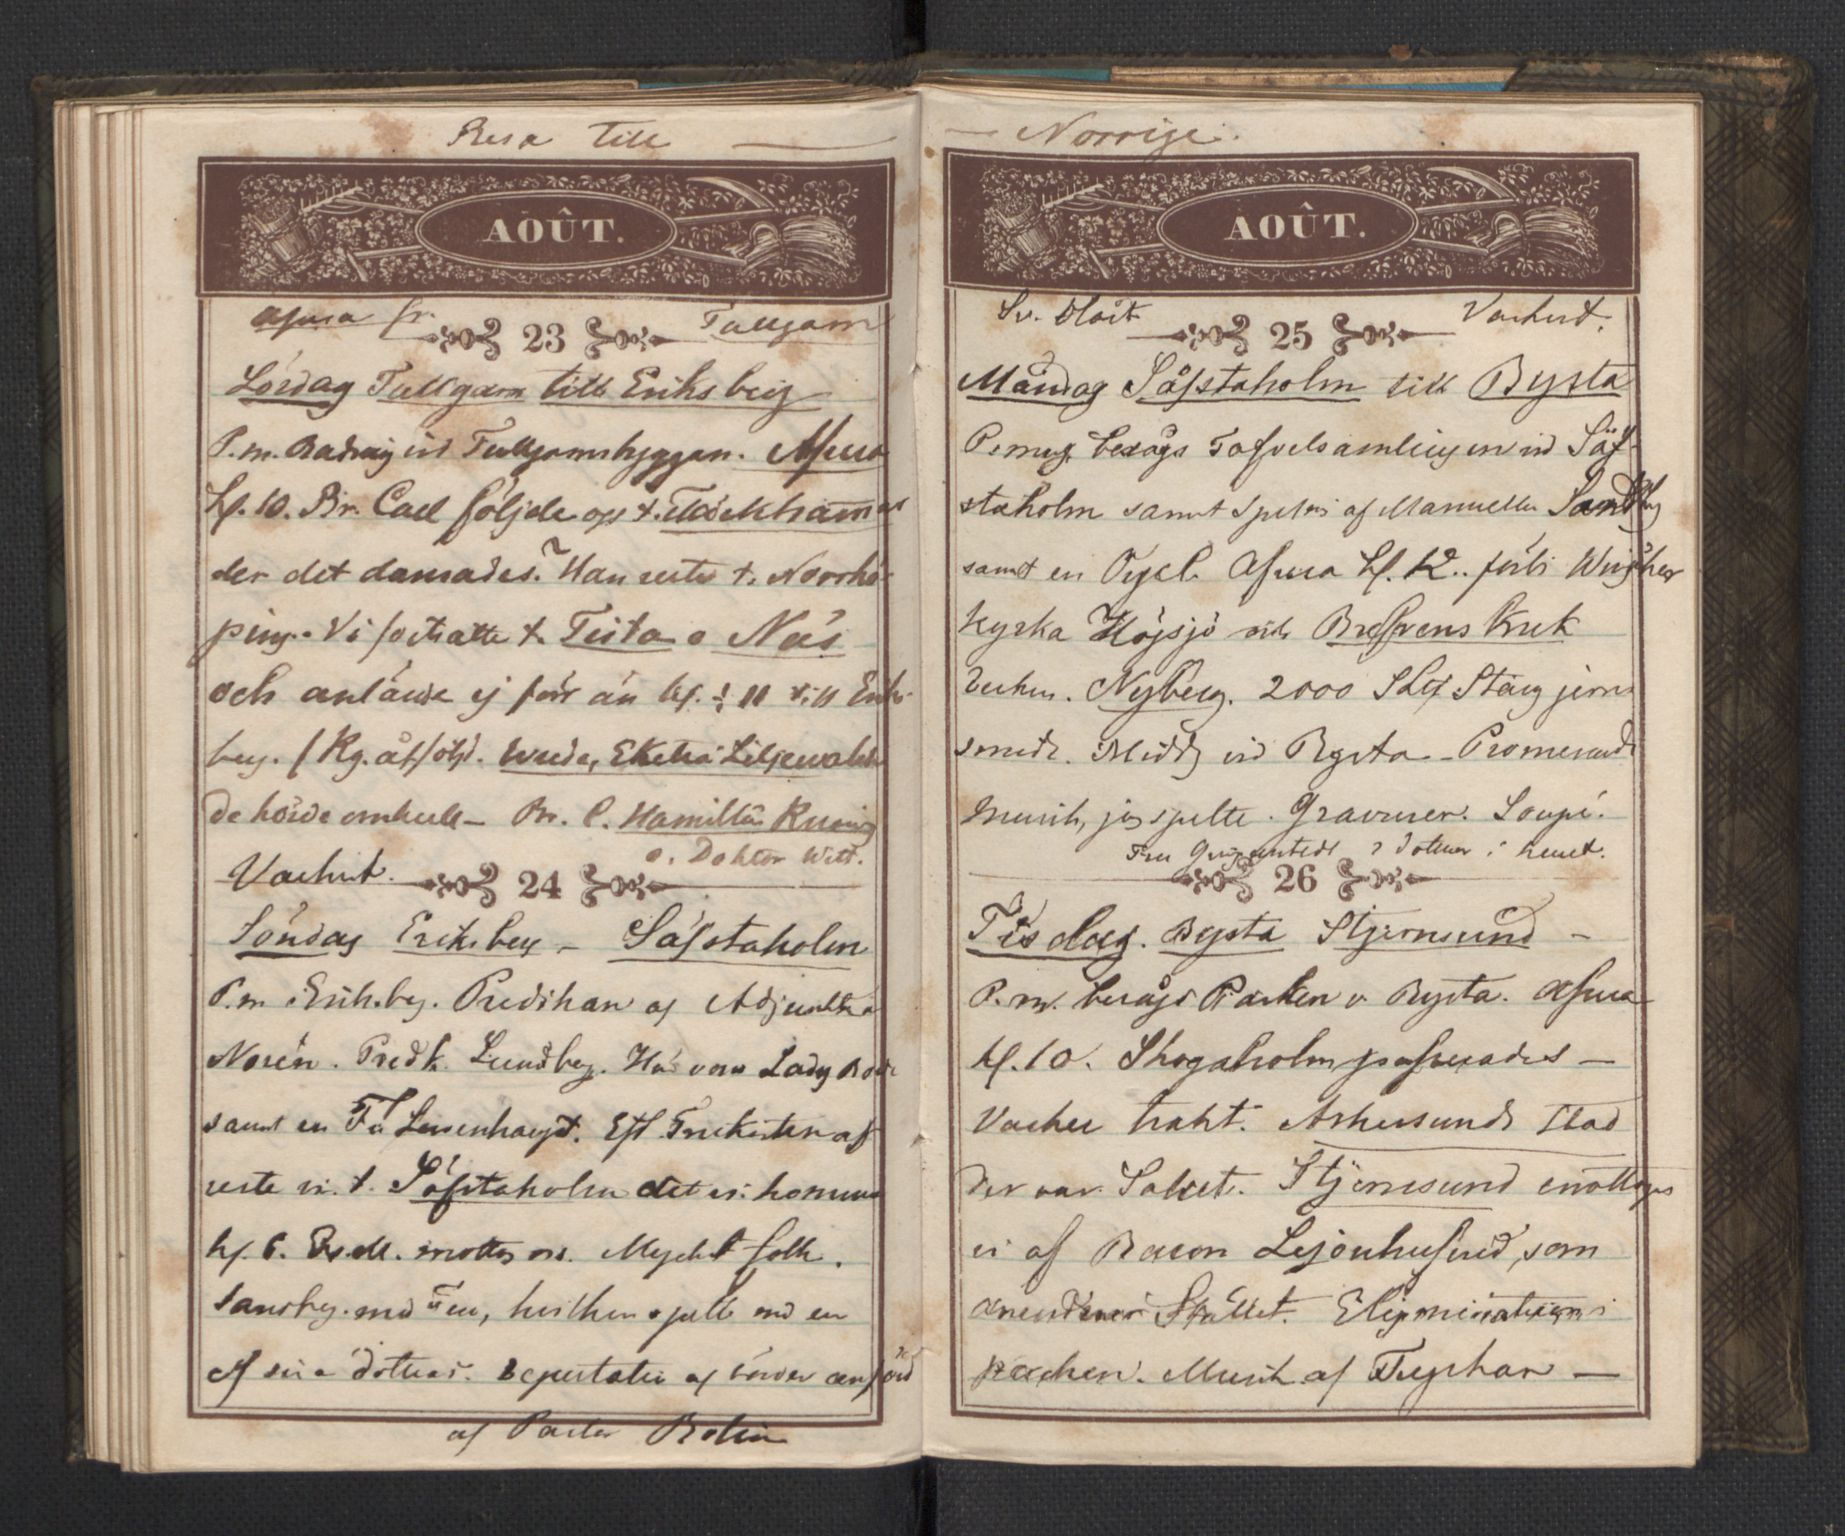 Resa till — — Norrige.
AOÛT.
afresa fr. 23 Tullgarn
Lördag Tullgarn till Eriksberg
F.m. Badning vid Tullgarnsbryggan. Afresa
kl. 10. Br. Carl följde oss t.
der det dansades. Han reste t. Norrkö-
ping. Vi fortsatte t. Tista o Näs
och anlände ej förr än kl. ½ 11 till Eriks-
berg. Wrede, Liljewalch
de hörde omkull – Br. C. Hamilton
o. Doktor Witt.
Vackert. 24
Söndag Eriksberg – Säfstaholm
F.m. i Eriksbg. Predikan af Adjunkten
Norén. Predk. Lundberg. Här voro Lady
samt en Eft. Frukosten af
reste vi t. Säfstaholm det vi kommo
kl. 6. mottog oss. Mycket folk.
Sandbg. med Fru, hvilken spelte med en
af sina döttrar. Deputation af bönder anförd
af Pastor Bolin
AOÛT.
Sv. Blåst 25 Vackert.
Måndag Säfstaholm till Bysta
F.meg. besågs Tafvelsamlingen vid Säf-
staholm samt Spelas af Mamsellen Sandbg
samt en Afresa kl. 12.. förbi Wingåker
kyrka Högsjö och Brefvens Bruk
Nyberg. 2000 Stångjern
smids. Middg vid Bysta – Promenad
Musik, jag spelte. Gravurer. Soupé.
2 döttrar i huset.
26
Tisdag. Bysta Stjernsund –
F.m. besågs Parken v. Bysta. Afresa
kl. 10. Skogaholm passerades –
Vacker trakt. Askersunds Stad
Der var Stjernsund emottogs
vi af Baron Lejonhufvud, som
Stället. Elumination i
parken. Musik af Tyskar —